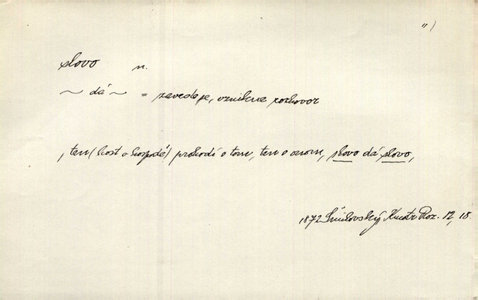 ")
slovo n.
~ dá ~ = zavede se, vznikne rozhovor
, ten (host v hospodě) prohodí o tom, ten o onom, slovo dá slovo,
1872 Šmilovský Kmotr Roz. 12, 18